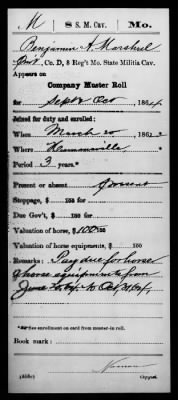 M 8 S. M. Cav. Mo.
Benjamin N. Marshal
Pvt, Co. D, 8 Reg't Mo. State Militia Cav.
Appears on
Company Muster Roll
for Sept & Oct, 1864
Joined for duty and enrolled:
When March 20, 186
Where
Period 3 years.*
Present or absent Present
Stoppage, $ 100 for
Due Gov't, $ 100 for
Valuation of horse, $ 100 100
Valuation of horse equipments, $ 100
Remarks: Pay due for horse
& horse equipments from
June to Oct 31, 64
*See enrollment on card from muster-in roll.
Copyist.